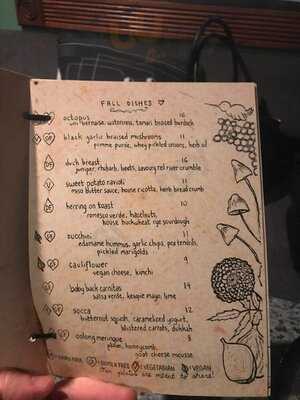 FALL DISHES
octopus 16
bernaise, watercress, tamari braised burdock
V DF black garlic braised mushrooms 11
pomme purée, whey pickled onions, herb oil
DF duck breast 16
juniper, rhubarb, beets, savoury rel river crumble
V sweet potato ravioli 11
miso butter sauce, house ricotta, herb bread crumb
DF herring on toast 10
romesco verde, hazelnuts,
house buckwheat rye sourdough
zucchini 11
edamame hummus, garlic chips, pea tendrils,
pickled marigolds
cauliflower 9
vegan cheese, kimchi
baby back carnitas 14
salsa verde, kewpie mayo, lime
socca 12
butternut squash, caramelized yogurt,
blistered carrots, dukkah
oolong meringue 8
honeycomb,
goat cheese mousse
: DAIRY FREE : GLUTEN FREE V: VEGETARIAN : VEGAN
Our plates are meant to share!